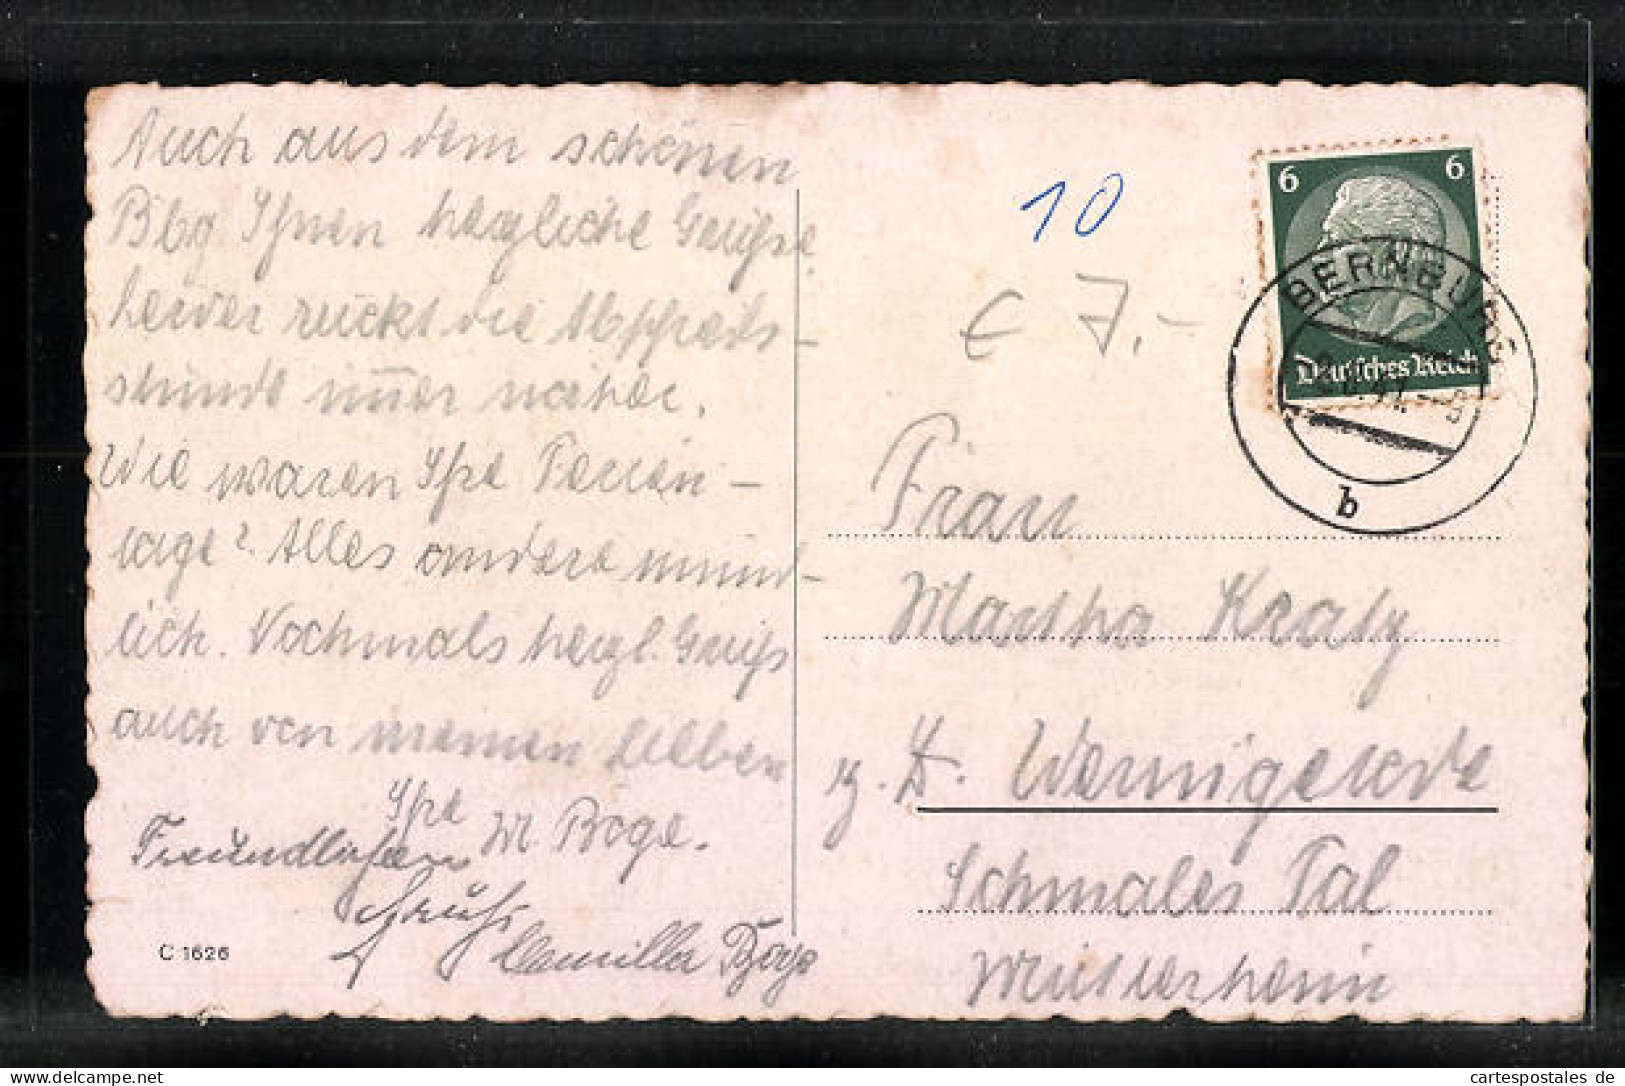 Auch aus dem schönen
Bbg Ihnen herzliche Grüße.
Leider rückt die Abschieds-
stunde immer näher.
Wie waren Ihre Ferien-
tage? Alles andere münd-
lich. Nochmals herzl. Gruß
auch von meinen Lieben
Ihre
M. Boge.
Freundlichen
Gruß
Camilla Boge
C 1626
10
€ 7.-
6 6
Deutsches Reich
BERNBURG
b
Frau
Martha Kraty
z. Zt. Wernigerode
Schmales Tal
Mütterheim
cartespostales de